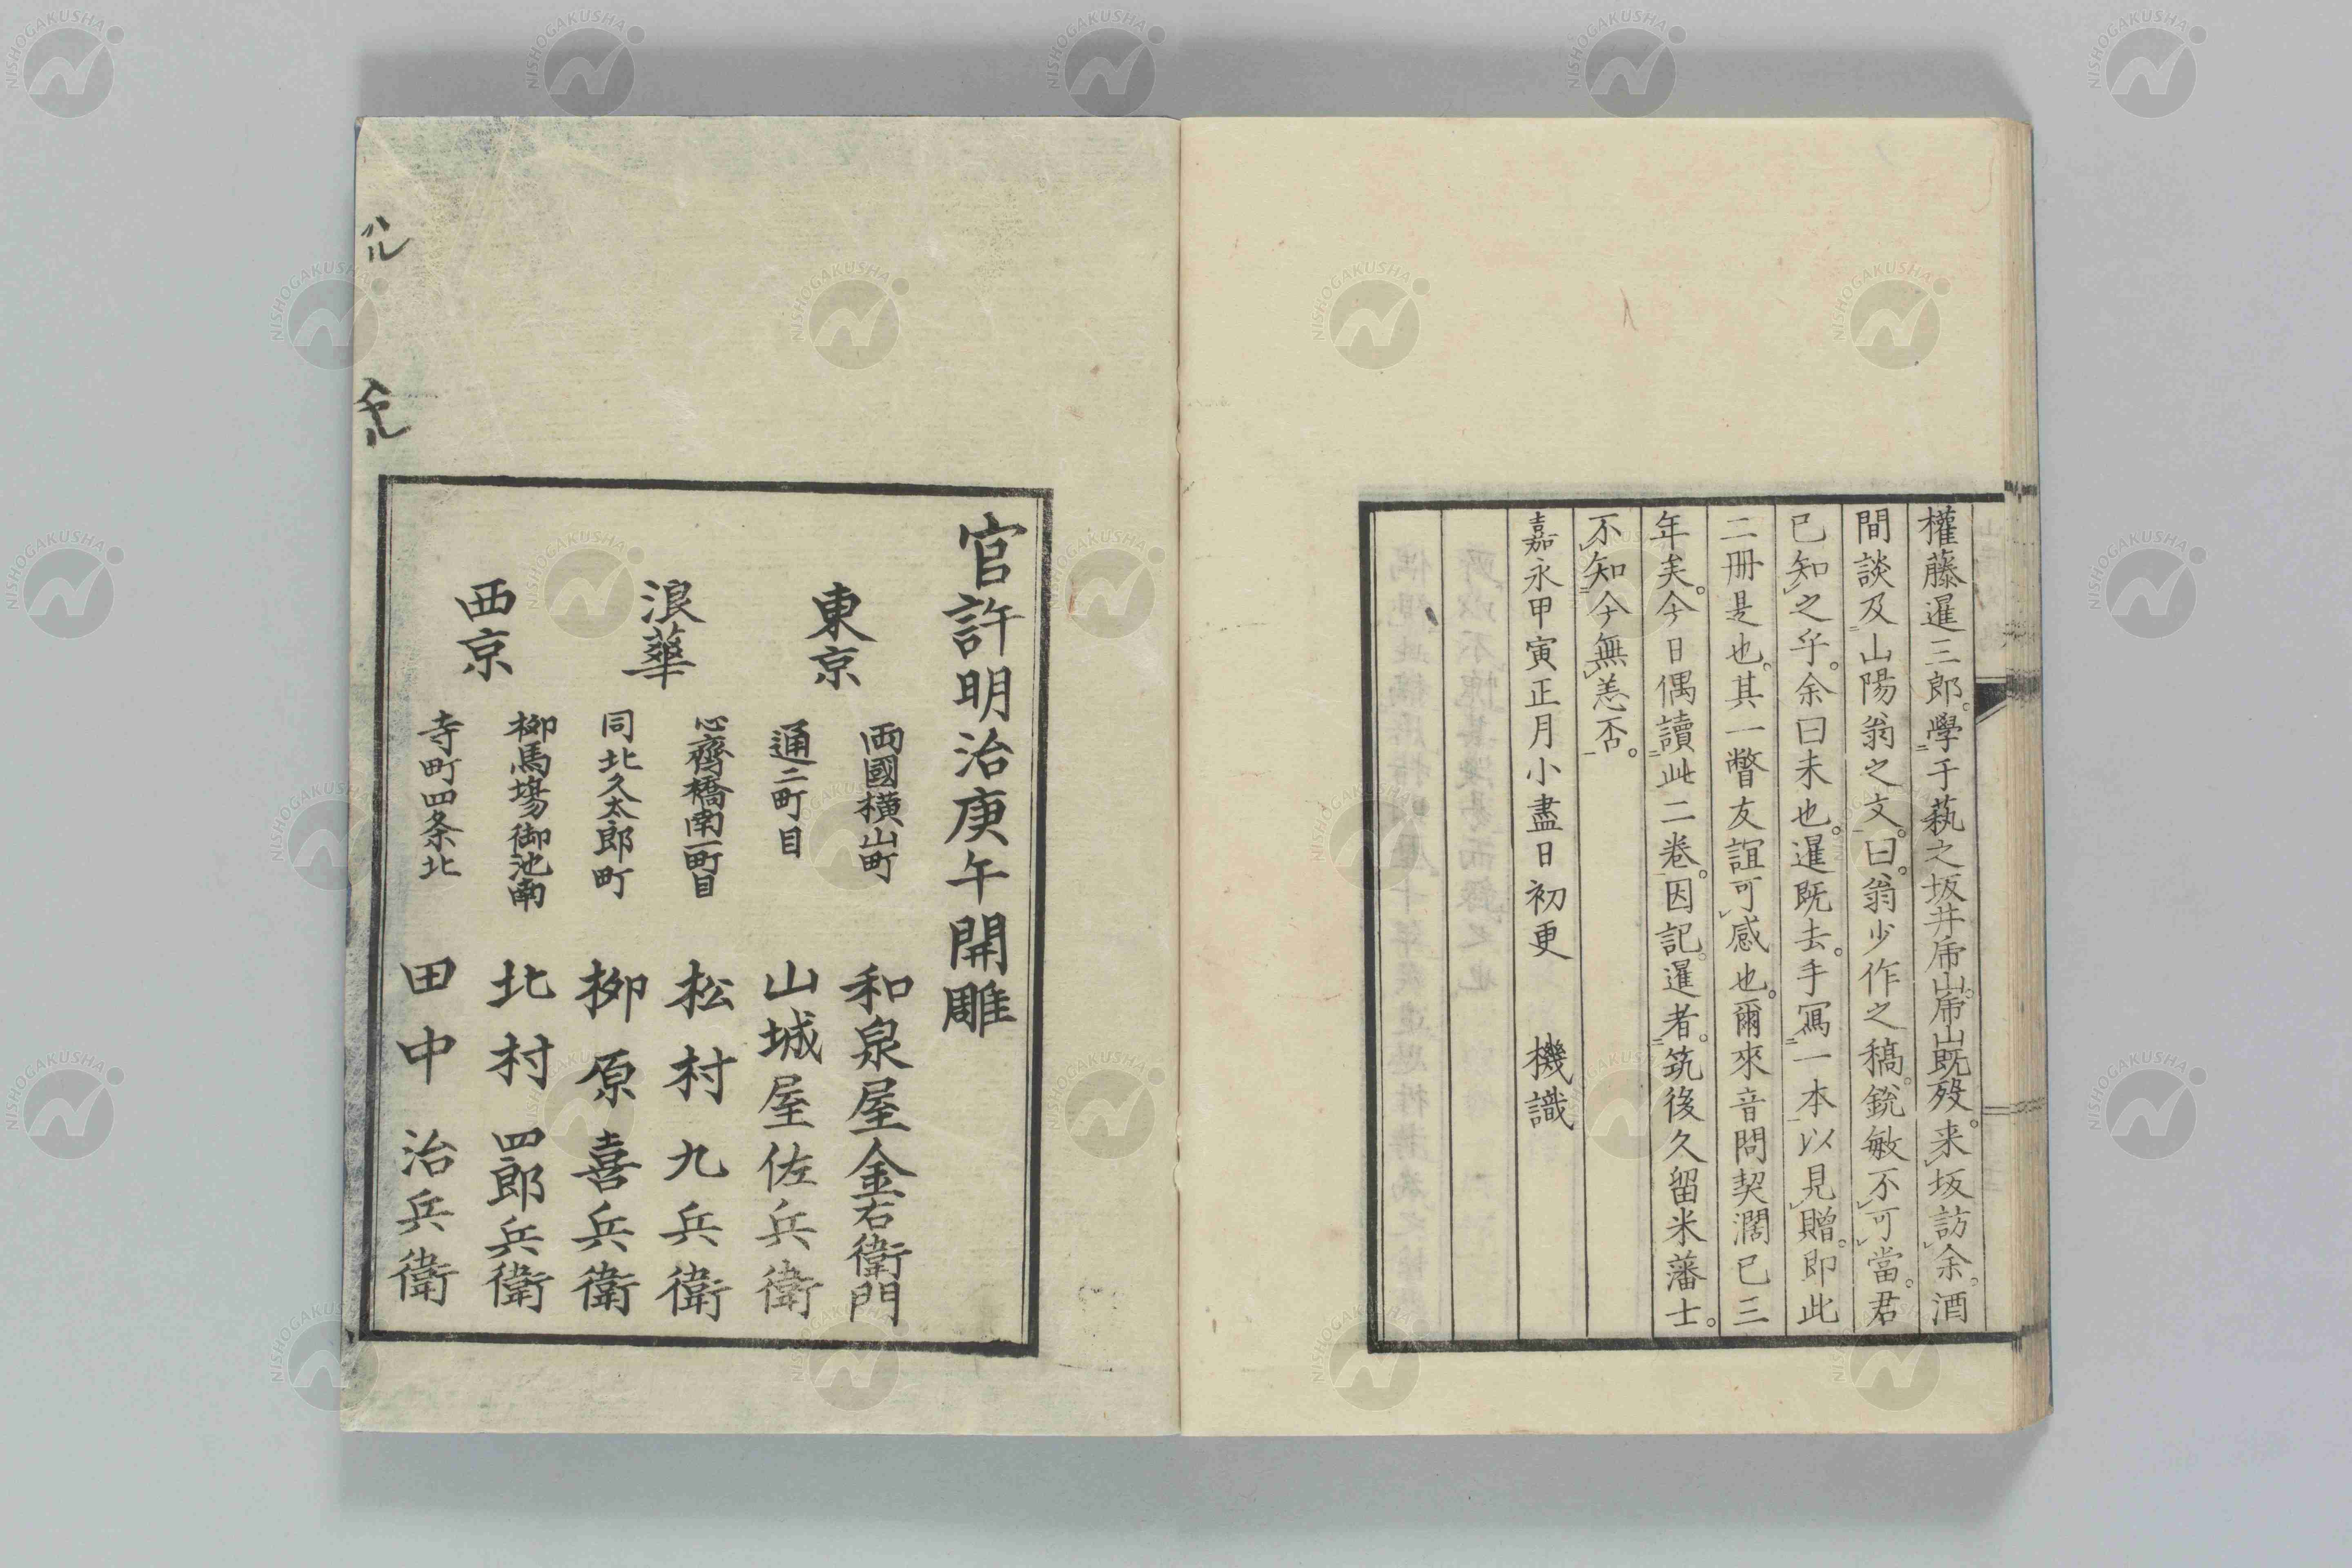 權藤暹三郎。學于藝之坂井乕山。乕山既歿。来坂訪余。酒
間談及山陽翁之文。曰。翁少作之稿。銳敏不可當。君
已知之乎。余曰未也。暹既去。手冩一本以見贈。即此
二冊是也。其一瞥友誼可感也。爾來音問契濶已三
年矣。今日偶讀此二卷。因記。暹者。筑後久留米藩士。
不知今無恙否。
嘉永甲寅正月小盡日初更 機識
官許明治庚午開雕
東京
兩國横山町 和泉屋金右衛門
通二町目 山城屋佐兵衛
浪華
心齋橋南一町目 松村九兵衛
同北久太郎町 柳原喜兵衛
西京
柳馬塲御池南 北村四郎兵衛
寺町四条北 田中治兵衛
NISHOGAKUSHA